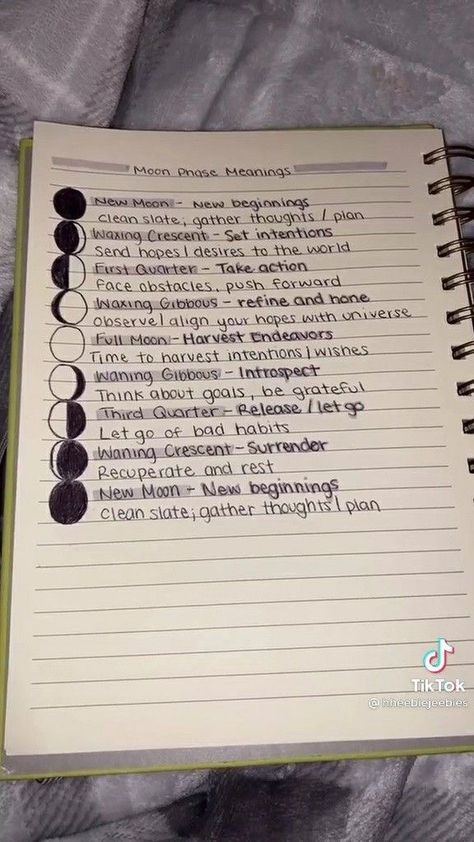 Moon Phase Meanings
New Moon - New beginnings
clean slate; gather thoughts / plan
Waxing Crescent - Set intentions
Send hopes / desires to the world
First Quarter - Take action
Face obstacles, push forward
Waxing Gibbous - refine and hone
observe / align your hopes with universe
Full Moon - Harvest Endeavors
Time to harvest intentions / wishes
Waning Gibbous - Introspect
Think about goals, be grateful
Third Quarter - Release / let go
Let go of bad habits
Waning Crescent - Surrender
Recuperate and rest
New Moon - New beginnings
clean slate; gather thoughts / plan
TikTok
@hheebiejeebies